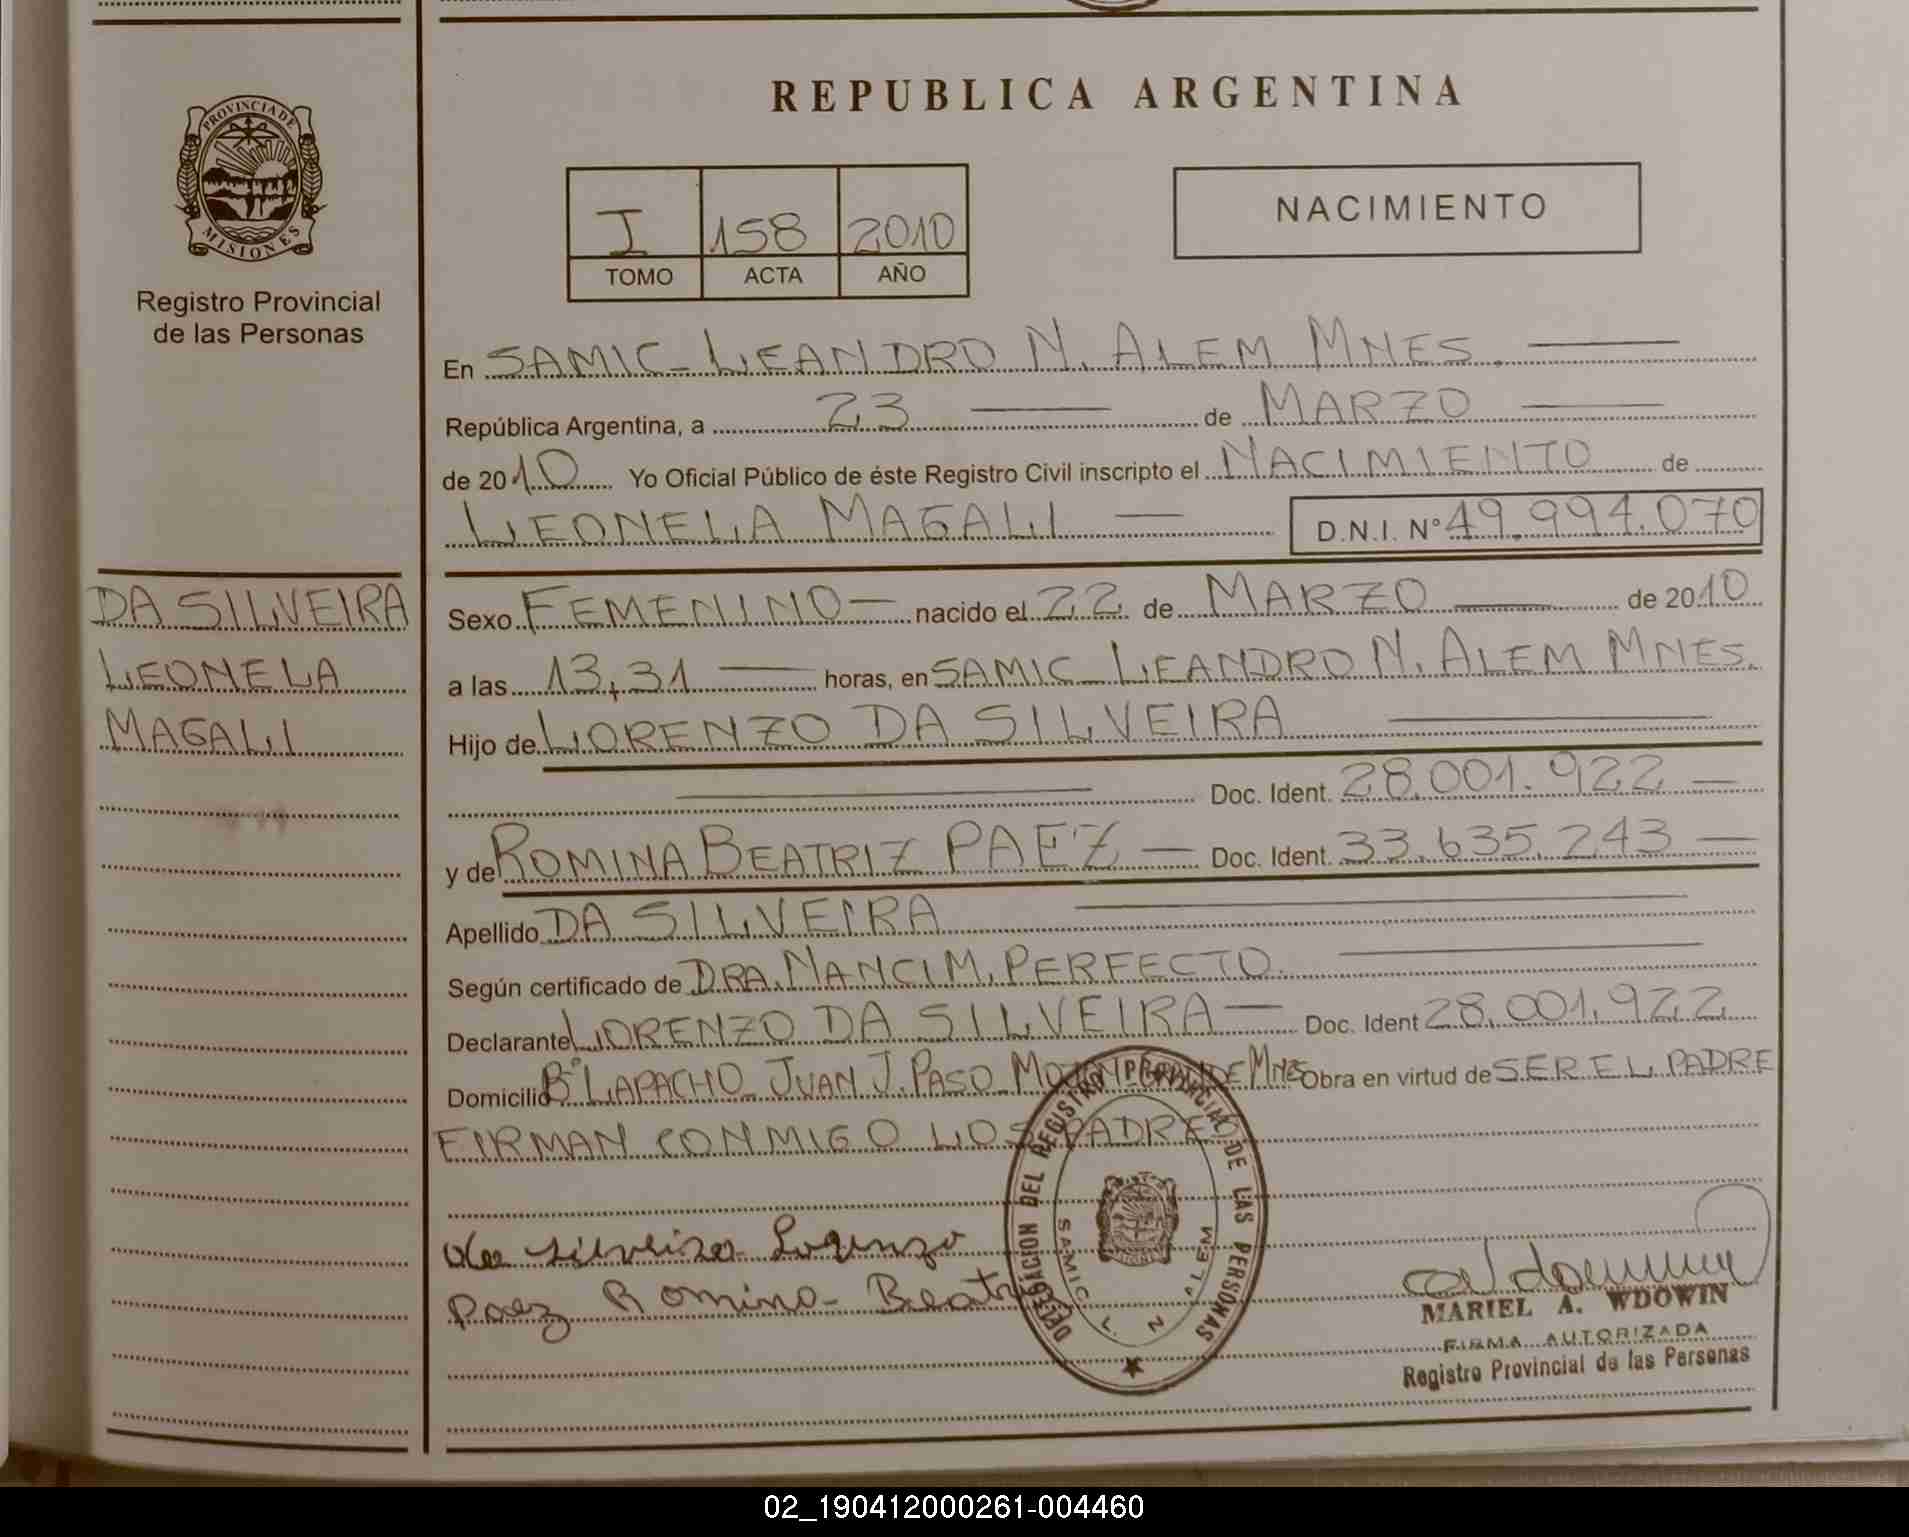 PROVINCIA DE
MISIONES
Registro Provincial
de las Personas
DA SILVEIRA
LEONELA
MAGALI
REPUBLICA ARGENTINA
I 158 2010
TOMO ACTA AÑO
NACIMIENTO
En SAMIC - LEANDRO N. ALEM MNES.
República Argentina, a 23 de MARZO
de 2010 Yo Oficial Público de éste Registro Civil inscripto el NACIMIENTO de
LEONELA MAGALI D.N.I. Nº 49.994.070
Sexo FEMENINO nacido el 22 de MARZO de 2010
a las 13,31 horas, en SAMIC - LEANDRO N. ALEM MNES.
Hijo de LORENZO DA SILVEIRA
Doc. Ident. 28.001.922
y de ROMINA BEATRIZ PAEZ Doc. Ident. 33.635.243
Apellido DA SILVEIRA
Según certificado de DRA. NANCI M. PERFECTO
Declarante LORENZO DA SILVEIRA Doc. Ident 28.001.922
Domicilio Bº LAPACHO - JUAN J. PASO - DE MNES Obra en virtud de SER EL PADRE
FIRMAN CONMIGO LOS PADRES
da silveira Lorenzo
Paez Romina Beatriz
DELEGACION DEL REGISTRO PROVINCIAL DE LAS PERSONAS
SAMIC L. N. ALEM
MARIEL A. WDOWIN
FIRMA AUTORIZADA
Registro Provincial de las Personas
02_190412000261-004460